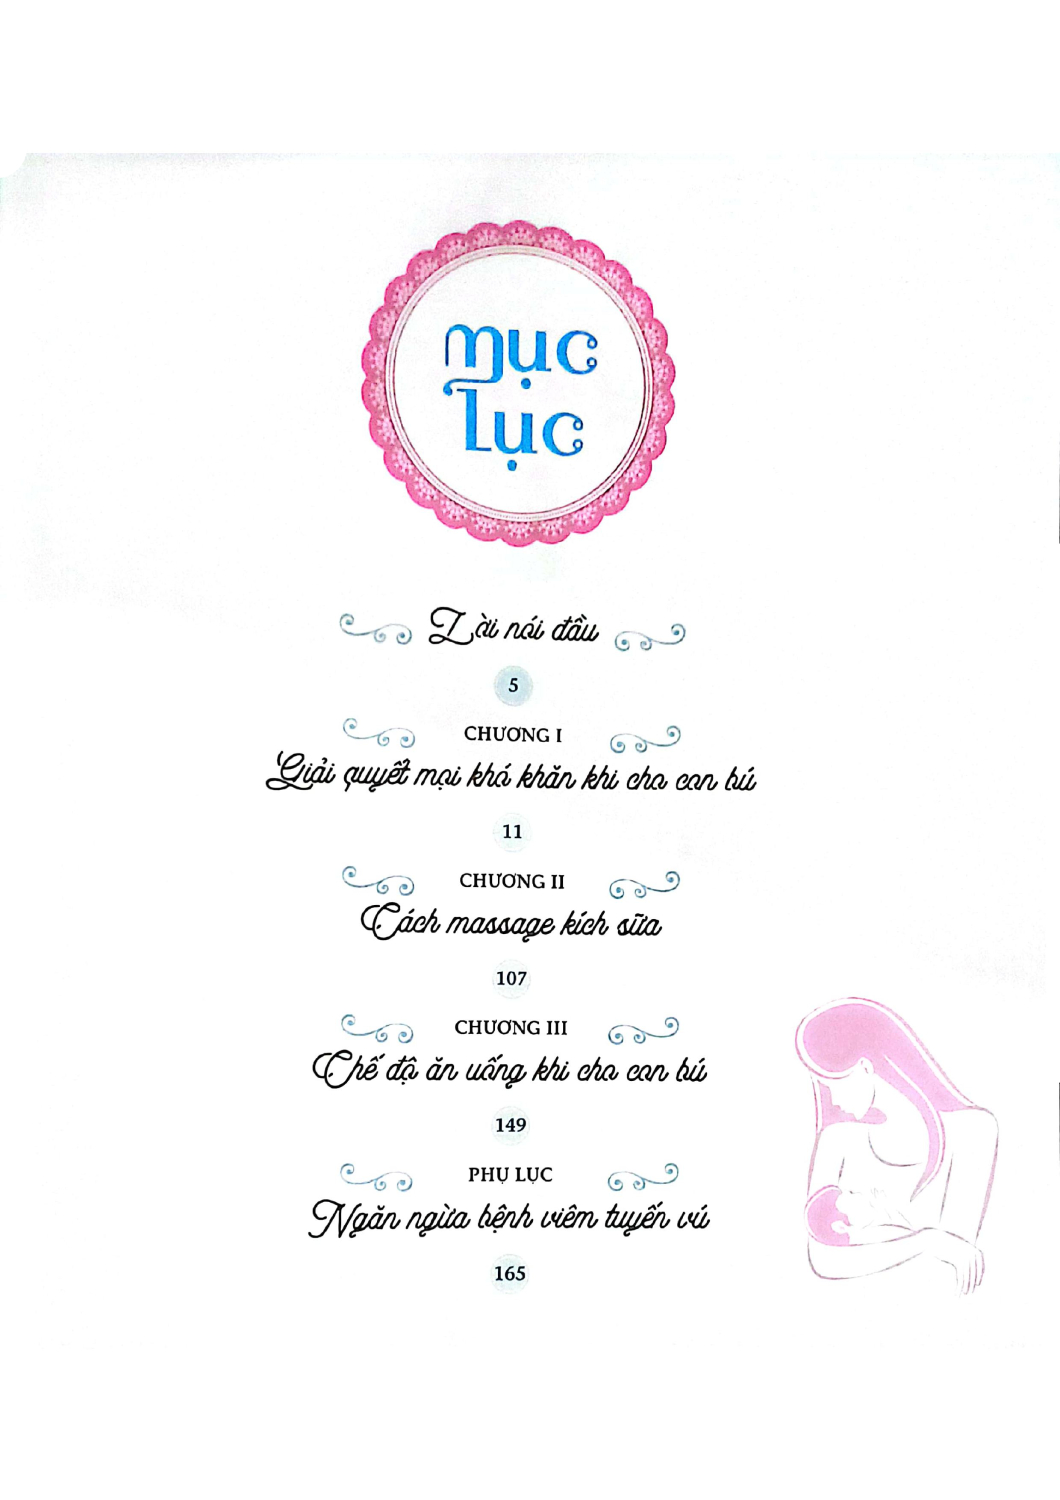 mục
Lục
Lời nói đầu
5
CHƯƠNG I
Giải quyết mọi khó khăn khi cho con bú
11
CHƯƠNG II
Cách massage kích sữa
107
CHƯƠNG III
Chế độ ăn uống khi cho con bú
149
PHỤ LỤC
Ngăn ngừa bệnh viêm tuyến vú
165